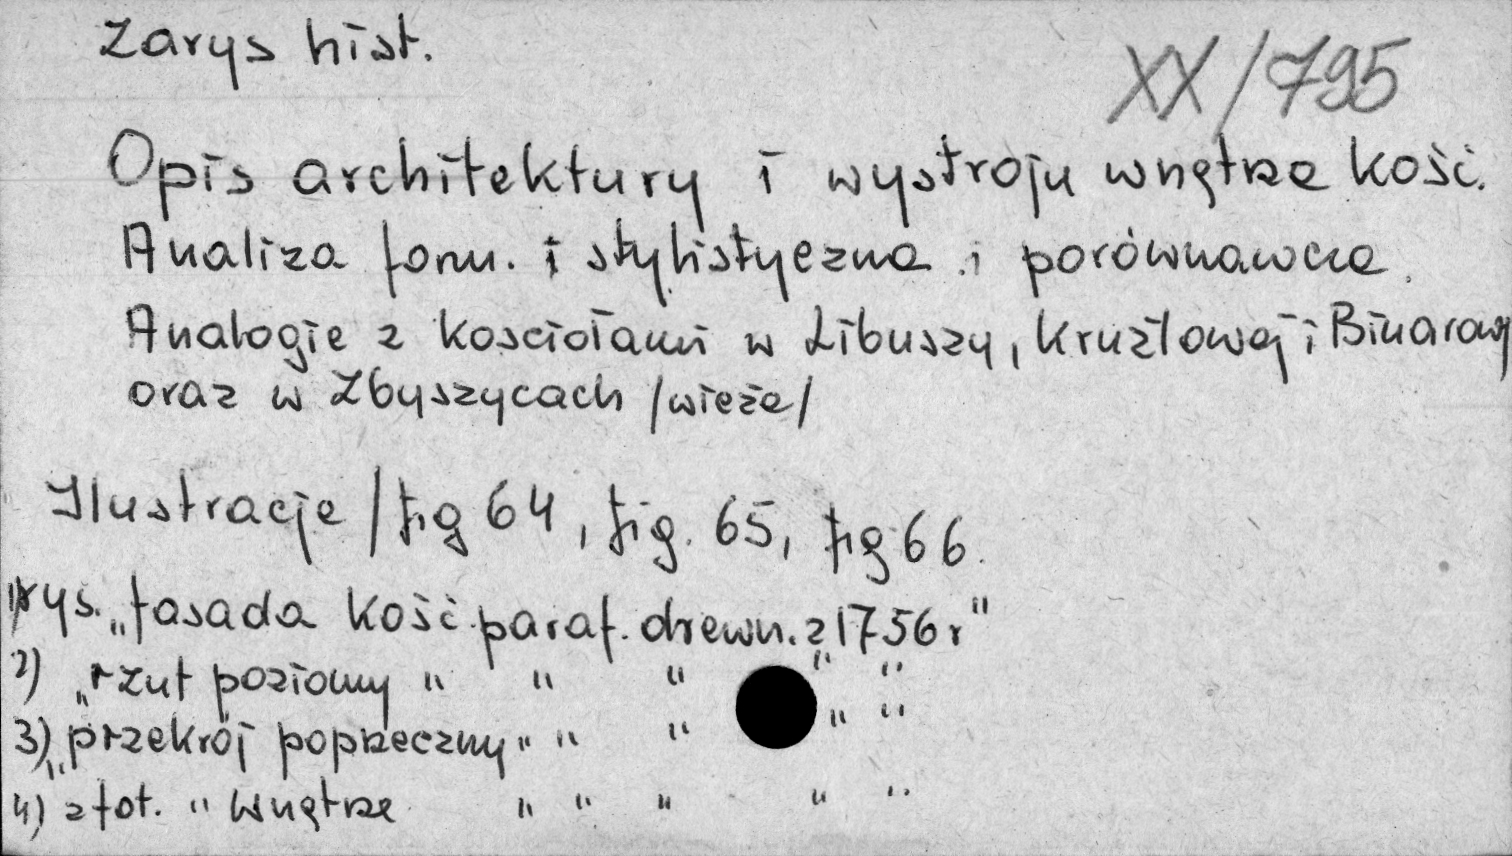 Zarys hist.
XX/795
Opis architektury i wystroju wnętrza kość.
Analiza form. i stylistyczna i porównawcza.
Analogie z kościołami w Libuszy, Krużlowej i Binarowej
oraz w Zbyszycach /wieża/
Ilustracje / fig 64, fig. 65, fig 66.
1) rys. „fasada kość. paraf. drewn. z 1756 r"
2) „rzut poziomy " " " " "
3) „przekrój poprzeczny " " " " "
4) 2 fot. " wnętrze " " " " "